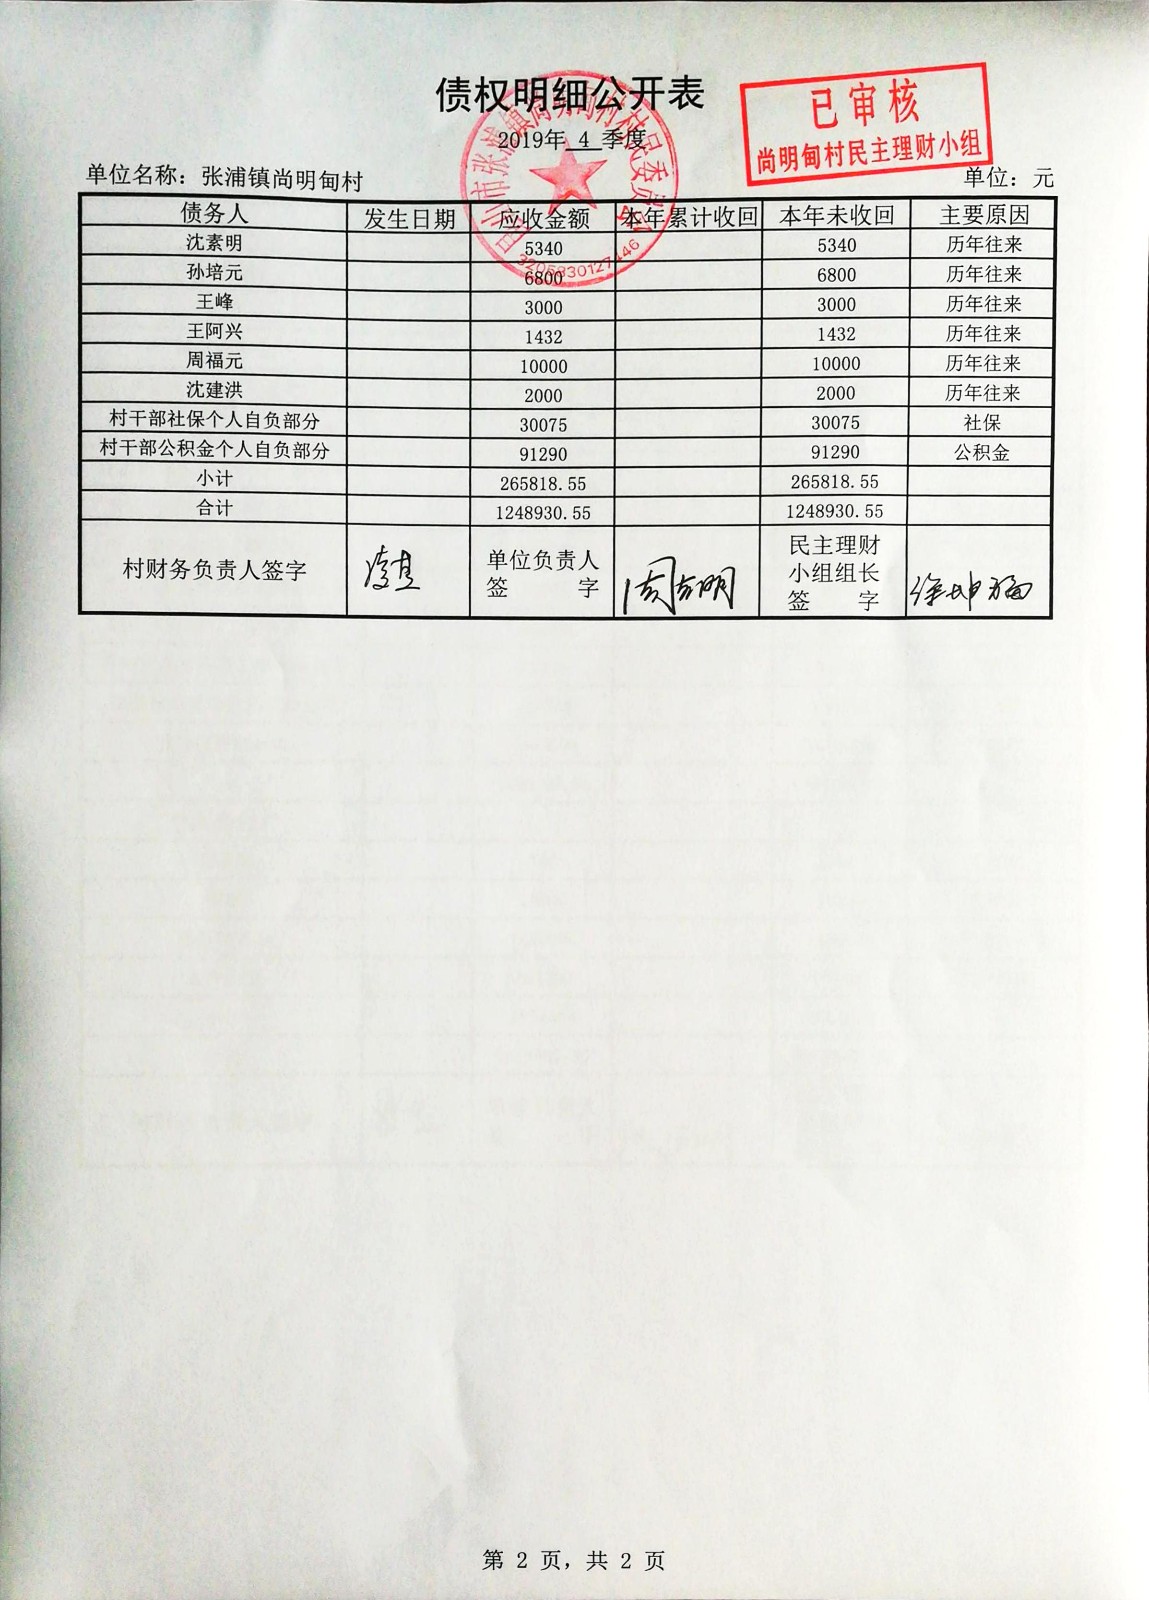 债权明细公开表
2019年 4 季度
已审核
尚明甸村民主理财小组
昆山市张浦镇尚明甸村村民委员会
3205830127446
单位名称：张浦镇尚明甸村 单位：元
债务人 发生日期 应收金额 本年累计收回 本年未收回 主要原因
沈素明 5340 5340 历年往来
孙培元 6800 6800 历年往来
王峰 3000 3000 历年往来
王阿兴 1432 1432 历年往来
周福元 10000 10000 历年往来
沈建洪 2000 2000 历年往来
村干部社保个人自负部分 30075 30075 社保
村干部公积金个人自负部分 91290 91290 公积金
小计 265818.55 265818.55
合计 1248930.55 1248930.55
村财务负责人签字
单位负责人
签 字
民主理财
小组组长
签 字
第 2 页，共 2 页